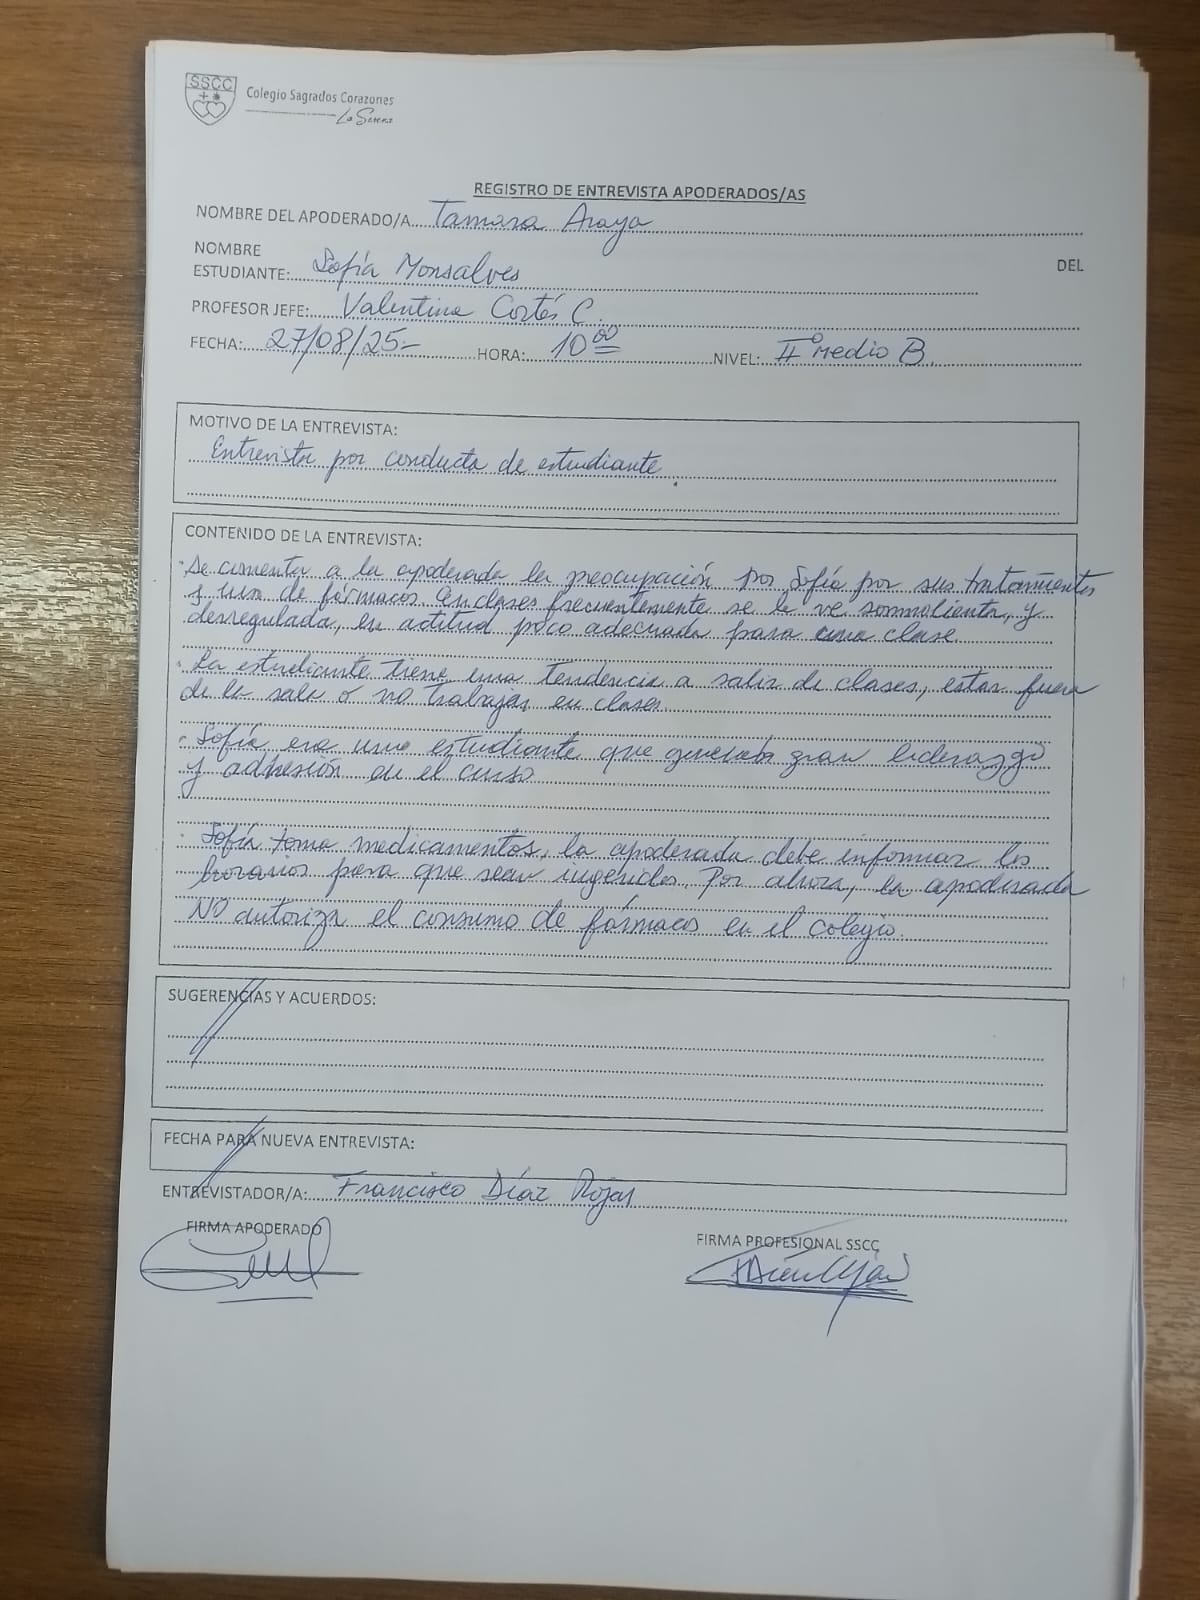 SSCC
Colegio Sagrados Corazones
La Serena
REGISTRO DE ENTREVISTA APODERADOS/AS
NOMBRE DEL APODERADO/A Tamara Araya
NOMBRE DEL
ESTUDIANTE: Sofía Monsalves
PROFESOR JEFE: Valentina Cortés C.
FECHA: 27/08/25.- HORA: 10:00 NIVEL: IIº Medio B.
MOTIVO DE LA ENTREVISTA:
Entrevista por conducta de estudiante.
CONTENIDO DE LA ENTREVISTA:
· Se comenta a la apoderada la preocupación por Sofía por sus tratamientos
y uso de fármacos. En clases frecuentemente se le ve somnolienta, y
desregulada, en actitud poco adecuada para una clase.
· La estudiante tiene una tendencia a salir de clases, estar fuera
de la sala o no trabajar en clases.
· Sofía era una estudiante que generaba gran liderazgo
y adhesión en el curso
· Sofía toma medicamentos, la apoderada debe informar los
horarios para que sean ingeridos. Por ahora, la apoderada
NO autoriza el consumo de fármacos en el colegio.
SUGERENCIAS Y ACUERDOS:
FECHA PARA NUEVA ENTREVISTA:
ENTREVISTADOR/A: Francisco Díaz Rojas
FIRMA APODERADO
FIRMA PROFESIONAL SSCC